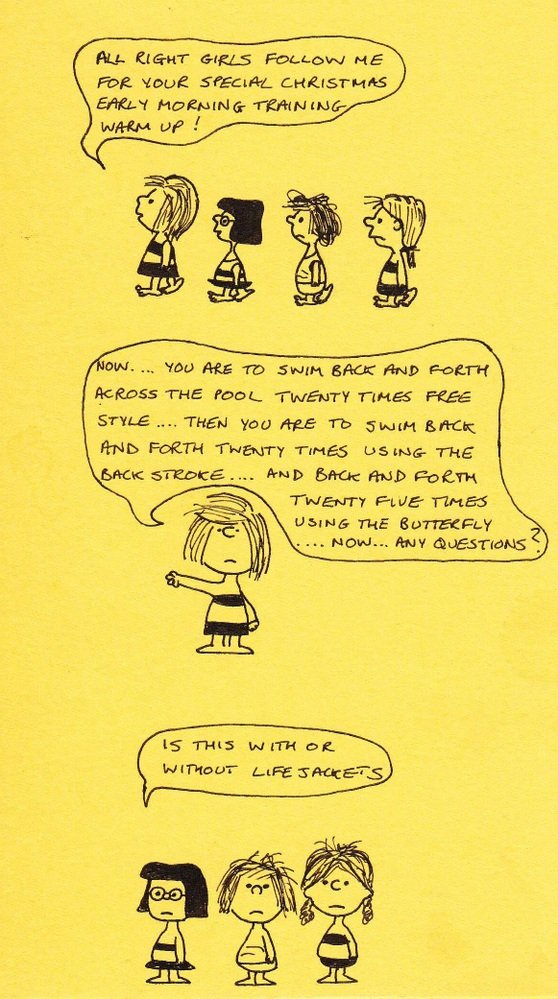 ALL RIGHT GIRLS FOLLOW ME
FOR YOUR SPECIAL CHRISTMAS
EARLY MORNING TRAINING
WARM UP!
NOW.... YOU ARE TO SWIM BACK AND FORTH
ACROSS THE POOL TWENTY TIMES FREE
STYLE.... THEN YOU ARE TO SWIM BACK
AND FORTH TWENTY TIMES USING THE
BACK STROKE.... AND BACK AND FORTH
TWENTY FIVE TIMES
USING THE BUTTERFLY
.... NOW... ANY QUESTIONS?
IS THIS WITH OR
WITHOUT LIFEJACKETS